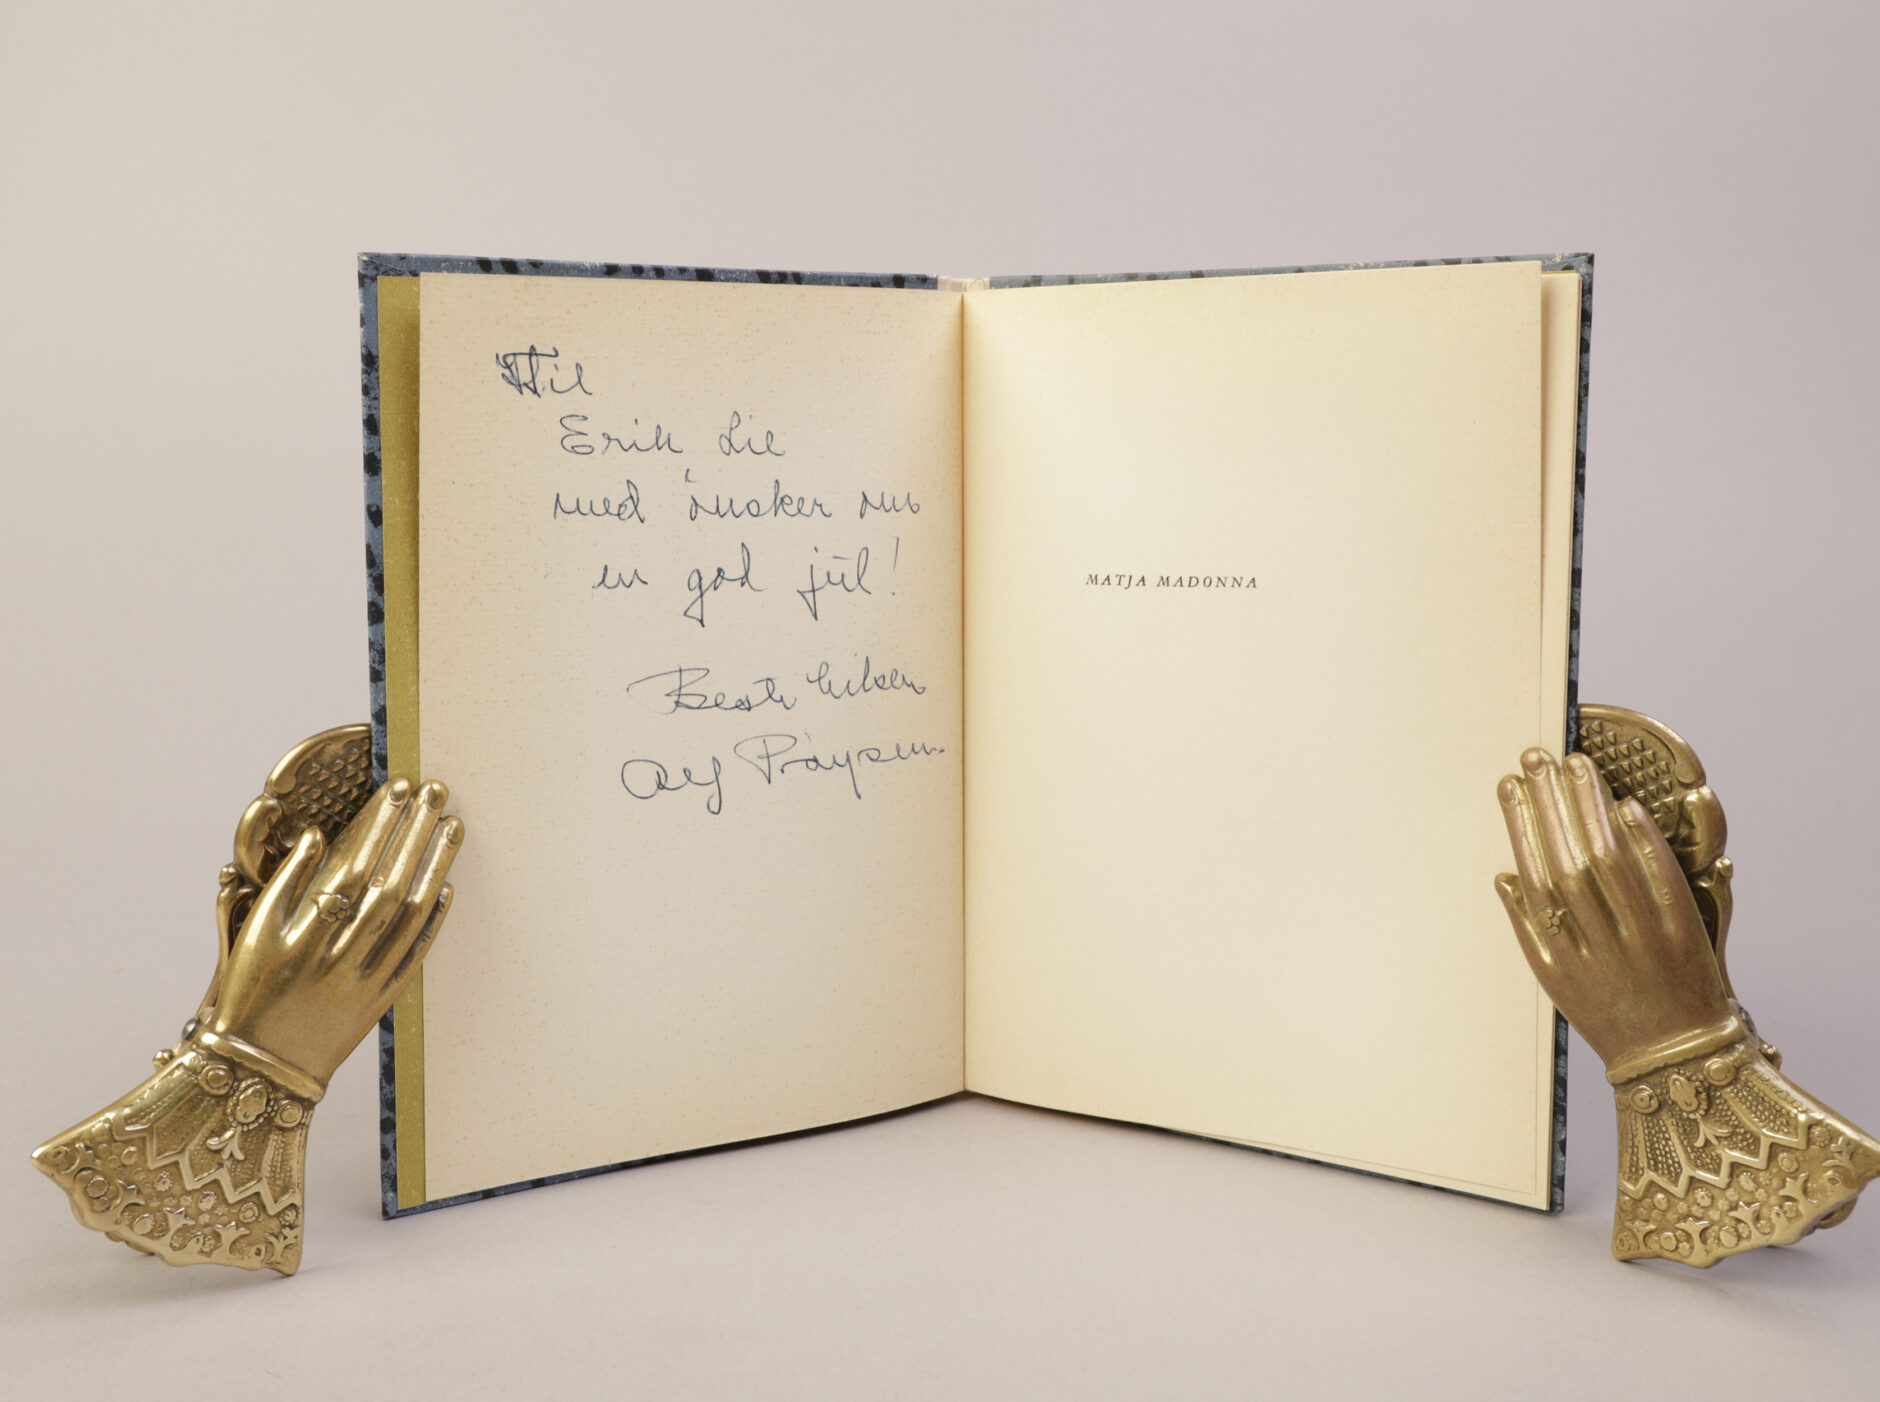 Til
Erik Lie
med ønsker om
en god jul!
Beste hilsen
Alf Prøysen.
MATJA MADONNA